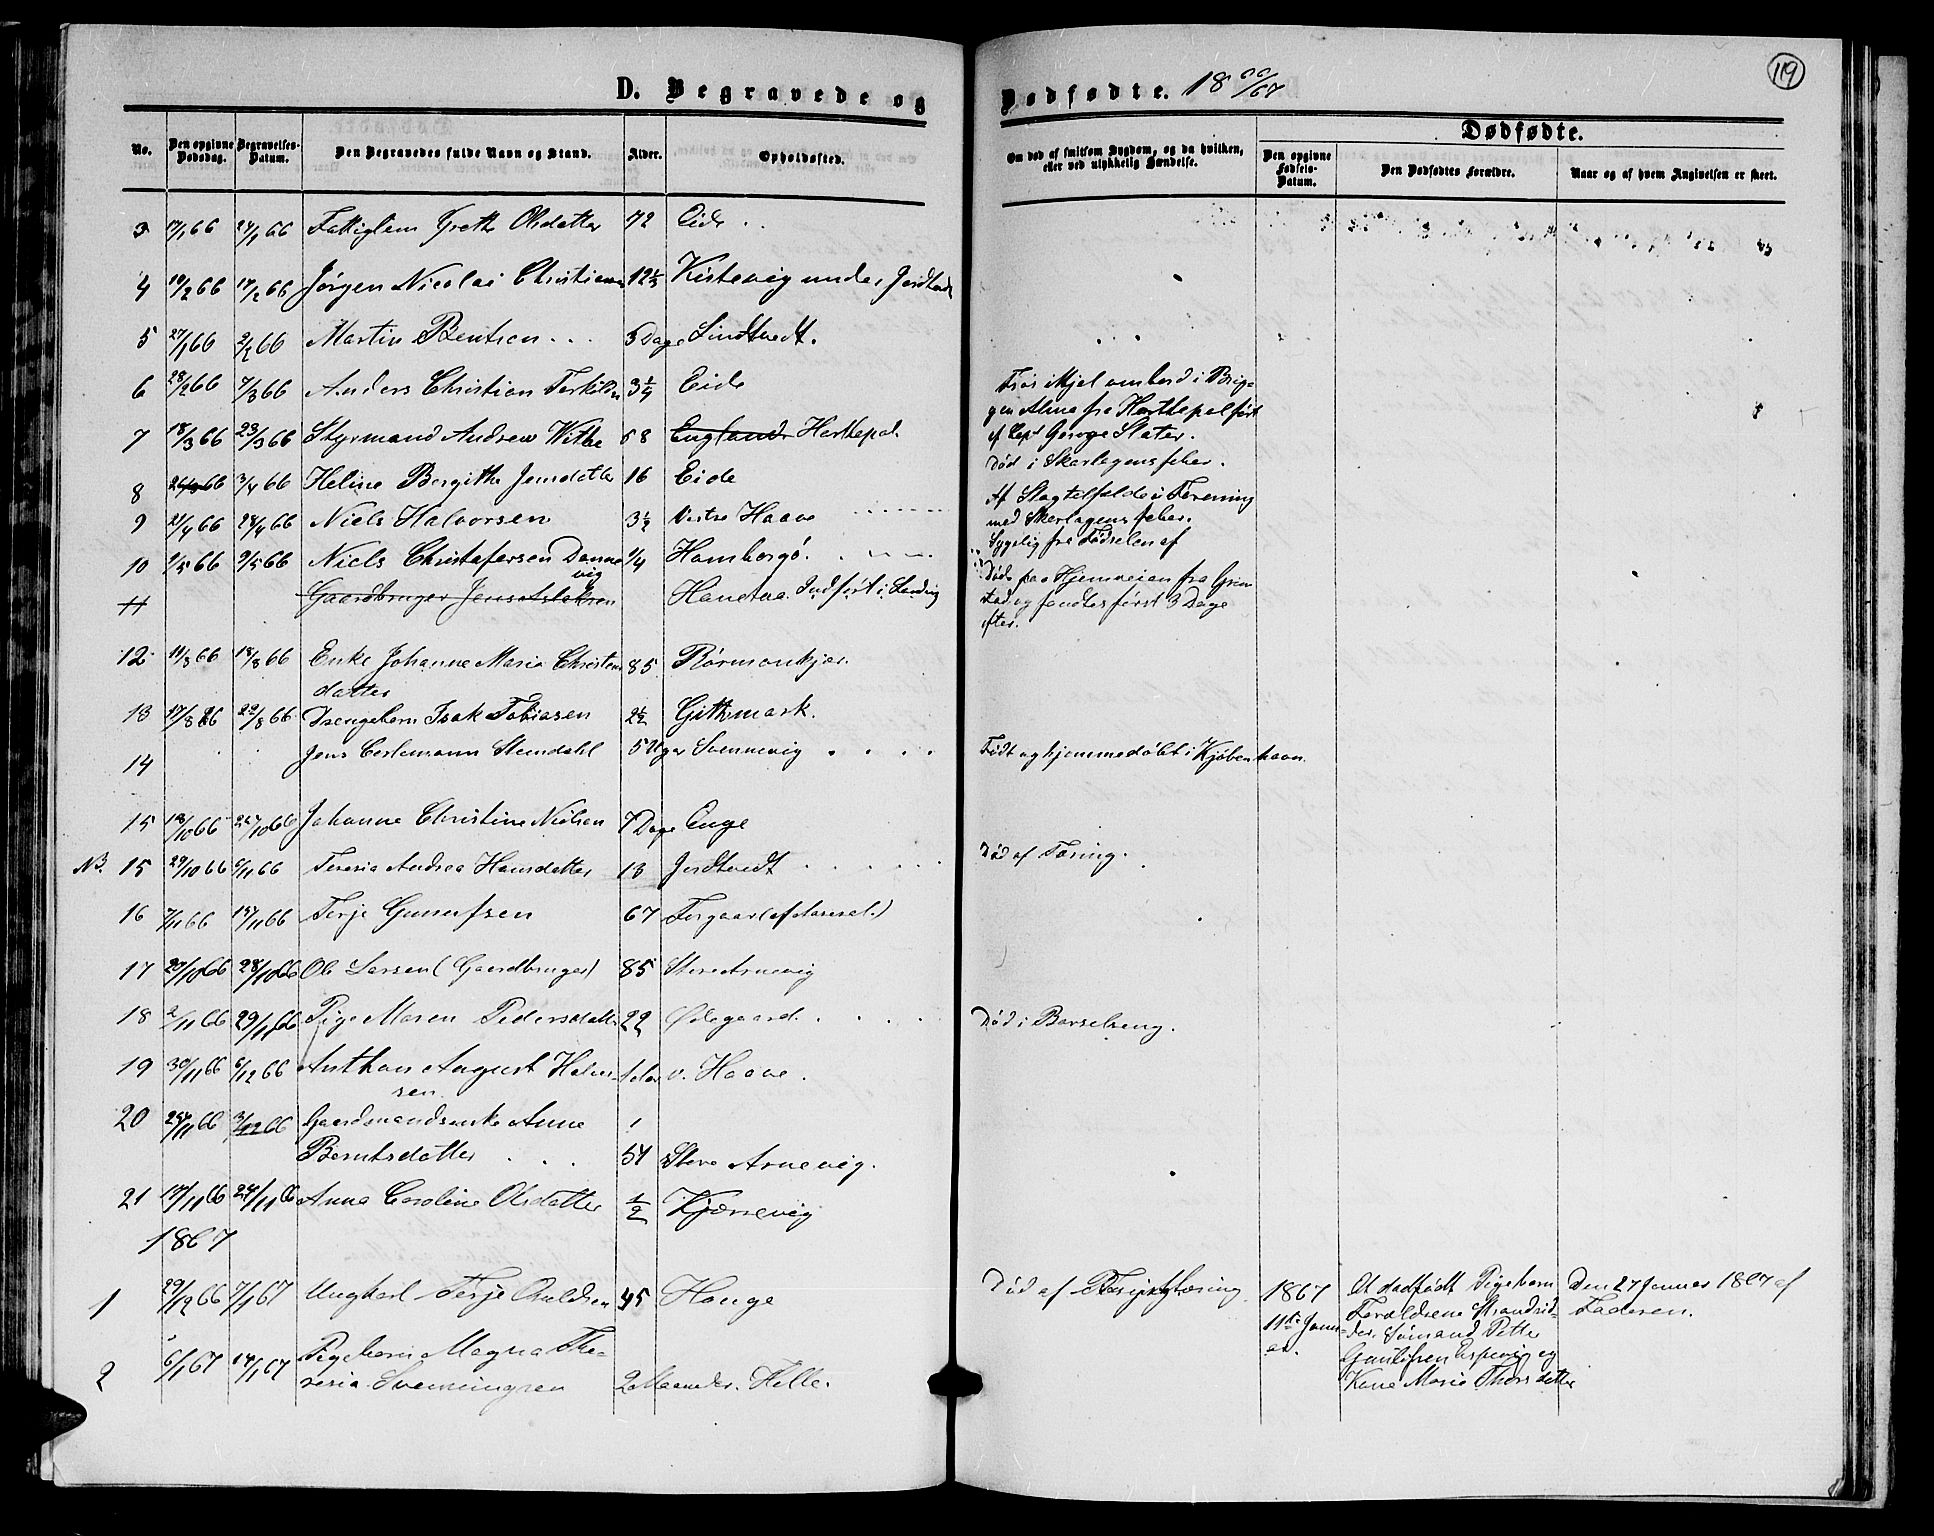 D. Begravede og Dødfødte. 18 66/67
119
No.
Den opgivne Dødsdag.
Begravelses-Datum.
Den Begravedes fulde Navn og Stand.
Alder.
Opholdssted.
Om død af smitsom Sygdom, og da hvilken, eller ved ulykkelig Hændelse.
Dødfødte.
Den opgivne Fødsels-Datum.
Den Dødfødtes Forældre.
Naar og af hvem Angivelsen er skeet.
3 17/1 66 24/1 66 Fattiglem Grethe Olsdatter 72 Eide
4 10/2 66 17/2 66 Jørgen Nicolai Christiansen 12 Kistevig under
5 27/1 66 2/2 66 Martin Bentsen 5 Dage Lindtvedt.
6 28/2 66 7/3 66 Anders Christian Terkildsen 3 1/4 Eide
7 18/3 66 23/3 66 Styrmand Andrew 58 England Hartlepol.
ombord i Briggen Alma fra Hartlepol ført
af Capt George Slater.
8 66 3/4 66 Heline Bergithe Jensdatter 16 Eide
Død i Skarlagensfeber.
9 21/4 66 28/4 66 Niels Halvorsen 3 1/2 Vestre Haave
Af Slagtilfælde i Forening
med Skarlagensfeber.
10 2/5 66 9/5 66 Niels Christofersen Dannevig 1/4 Homborgø.
Sygelig fra Fødselen af
11 Gaardbruger Jens Aslaksen Indført i Landvig
Døde paa Hjemveien fra Grimstad og fandtes først 3 Dage
efter.
12 11/8 66 18/8 66 Enke Johanne Maria Christensdatter 85
13 17/8 66 22/8 66 Drengebarn Isak Tobiasen 2 1/2 Githmark.
14 Jens Stendahl 5 Uger Svennevig
Født og hjemmedøbt i Kjøbenhavn.
15 18/10 66 /10 66 Johanne Christine Nielsen 7 Dage Enge
NB. 15 29/10 66 6/11 66 Teresia Andrea Hansdatter 13 Jordtvedt
Død af Tæring.
16 7/11 66 15/11 66 Terje Gunulfsen 67
17 28/10 66 Ole Larsen (Gaardbruger) 85 Store Arnevig
18 2/11 66 29/11 66 Pige Maren Pedersdatter 22 Ødegaard.
Død i Barselseng.
19 30/11 66 6/12 66 Anthon August Halvorsen v. Haave.
20 /11 66 3/12 66 Gaardmandsenke Anne
Berntsdatter 54 Store Arnevig.
21 17/11 66 24/11 66 Anna Caroline Olsdatter 1/2 Kjørrevig
1867
1 29/12 66 7/1 67 Ungkarl Terje 45 Hauge
Død af Tæring
1867
11te Januar.
Et dødfødt Pigebarn
Forældrene Strandsidder, Sømand Petter
Gunulfsen Espevig og
Karen Maria Thorsdatter
Den 27 Januar 1867 af
Faderen.
2 6/1 67 14/1 67 Pigebarn Magna Theresia Svenningsen 2 Maaneder. Hille.